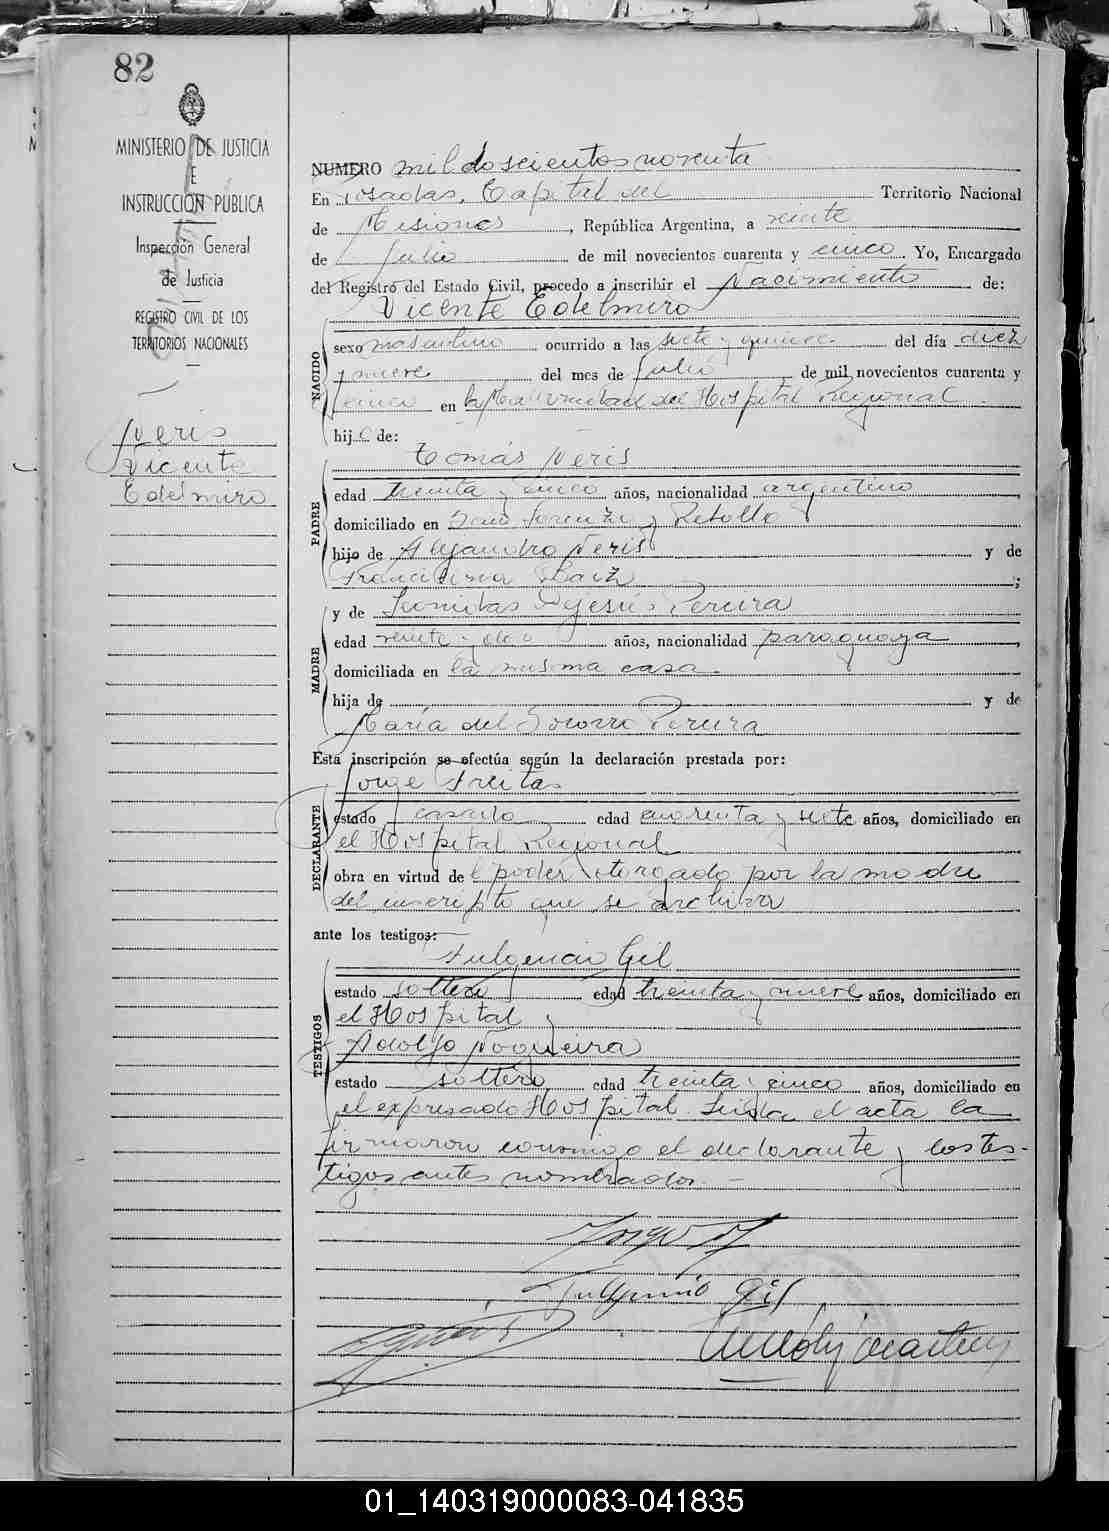 82
MINISTERIO DE JUSTICIA
E
INSTRUCCIÓN PÚBLICA
Inspección General
de Justicia
REGISTRO CIVIL DE LOS
TERRITORIOS NACIONALES
Neris
Vicente
Edelmiro
NUMERO mil doscientos noventa
En Posadas, Capital del Territorio Nacional
de Misiones, República Argentina, a veinte
de Julio de mil novecientos cuarenta y cinco Yo, Encargado
del Registro del Estado Civil, procedo a inscribir el Nacimiento de:
Vicente Edelmiro
NACIDO
sexo masculino ocurrido a las siete y quince del día diez
y nueve del mes de Julio de mil novecientos cuarenta y
cinco en la Maternidad del Hospital Regional.
hijo de:
Tomás Neris
PADRE
edad treinta y cinco años, nacionalidad argentino
domiciliado en San Lorenzo y Rebollo
hijo de Alejandro Neris y de
Francisca ;
y de Pereira
MADRE
edad veinte y años, nacionalidad paraguaya,
domiciliada en la misma casa.
hija de y de
María del Socorro Pereira
Esta inscripción se efectúa según la declaración prestada por:
Jorge Freitas
DECLARANTE
estado casado edad cuarenta y siete años, domiciliado en
el Hospital Regional
obra en virtud del poder otorgado por la madre
del inscripto que se archiva
ante los testigos:
Fulgencio Gil
TESTIGOS
estado soltero edad treinta y nueve años, domiciliado en
el Hospital y
Adolfo Nogueira
estado soltero edad treinta y cinco años, domiciliado en
el expresado Hospital. Leída el acta la
firmaron conmigo el declarante y los tes-
tigos antes nombrados.-
Fulgencio Gil
01_140319000083-041835